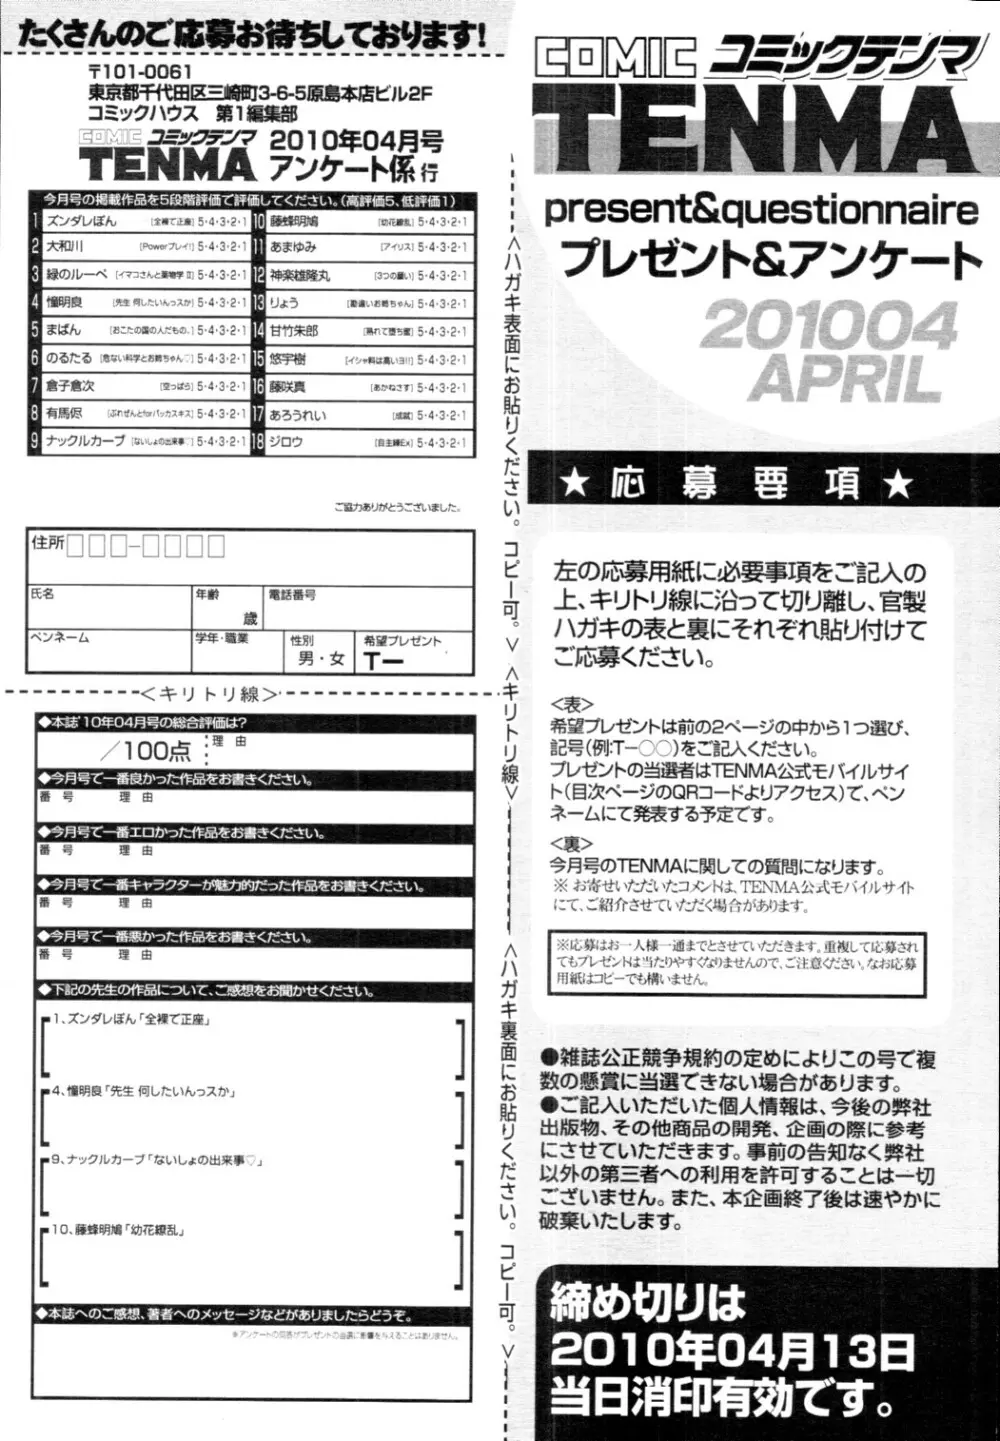 たくさんのご応募お待ちしております!
〒101-0061
東京都千代田区三崎町3-6-5原島本店ビル2F
コミックハウス 第1編集部
COMIC コミックテンマ
TENMA
2010年04月号
アンケート係 行
今月号の掲載作品を5段階評価で評価してください。(高評価5、低評価1)
1 ズンダレぽん [全裸で正座] 5・4・3・2・1
2 大和川 [Powerプレイ!] 5・4・3・2・1
3 緑のルーペ [イマコさんと薬物学Ⅱ] 5・4・3・2・1
4 憧明良 [先生 何したいんっスか] 5・4・3・2・1
5 まばん [おこたの国の人だもの。] 5・4・3・2・1
6 のるたる [危ない科学とお姉ちゃん♡] 5・4・3・2・1
7 倉子倉次 [空っぽら] 5・4・3・2・1
8 有馬侭 [ぷれぜんとforバッカスキス] 5・4・3・2・1
9 ナックルカーブ [ないしょの出来事♡] 5・4・3・2・1
10 藤蜂明鳩 [幼花繚乱] 5・4・3・2・1
11 あまゆみ [アイリス] 5・4・3・2・1
12 神楽雄隆丸 [3つの願い] 5・4・3・2・1
13 りょう [勘違いお姉ちゃん] 5・4・3・2・1
14 甘竹朱郎 [熟れて堕ち蜜] 5・4・3・2・1
15 悠宇樹 [イシャ料は高いヨ!!] 5・4・3・2・1
16 藤咲真 [あかねさす] 5・4・3・2・1
17 あろうれい [成就] 5・4・3・2・1
18 ジロウ [自主練Ex] 5・4・3・2・1
ご協力ありがとうございました。
住所□□□-□□□□
氏名
年齢
歳
電話番号
ペンネーム
学年・職業
性別
男・女
希望プレゼント
T―
<キリトリ線>
◆本誌'10年04月号の総合評価は?
/100点
理 由
◆今月号で一番良かった作品をお書きください。
番 号 理 由
◆今月号で一番エロかった作品をお書きください。
番 号 理 由
◆今月号で一番キャラクターが魅力的だった作品をお書きください。
番 号 理 由
◆今月号で一番悪かった作品をお書きください。
番 号 理 由
◆下記の先生の作品について、ご感想をお聞かせください。
1、ズンダレぽん「全裸で正座」
4、憧明良「先生 何したいんっスか」
9、ナックルカーブ「ないしょの出来事♡」
10、藤蜂明鳩「幼花繚乱」
◆本誌へのご感想、著者へのメッセージなどがありましたらどうぞ。
※アンケートの回答がプレゼントの当選に影響を与えることはありません。
<ハガキ表面にお貼りください。コピー可。>
<キリトリ線>
<ハガキ裏面にお貼りください。コピー可。>
COMIC コミックテンマ
TENMA
present&questionnaire
プレゼント&アンケート
201004
APRIL
★応募要項★
左の応募用紙に必要事項をご記入の
上、キリトリ線に沿って切り離し、官製
ハガキの表と裏にそれぞれ貼り付けて
ご応募ください。
<表>
希望プレゼントは前の2ページの中から1つ選び、
記号(例:T―○○)をご記入ください。
プレゼントの当選者はTENMA公式モバイルサイ
ト(目次ページのQRコードよりアクセス)で、ペン
ネームにて発表する予定です。
<裏>
今月号のTENMAに関しての質問になります。
※ お寄せいただいたコメントは、TENMA公式モバイルサイト
にて、ご紹介させていただく場合があります。
※応募はお一人様一通までとさせていただきます。重複して応募され
てもプレゼントは当たりやすくなりませんので、ご注意ください。なお応募
用紙はコピーでも構いません。
●雑誌公正競争規約の定めによりこの号で複
数の懸賞に当選できない場合があります。
●ご記入いただいた個人情報は、今後の弊社
出版物、その他商品の開発、企画の際に参考
にさせていただきます。事前の告知なく弊社
以外の第三者への利用を許可することは一切
ございません。また、本企画終了後は速やかに
破棄いたします。
締め切りは
2010年04月13日
当日消印有効です。